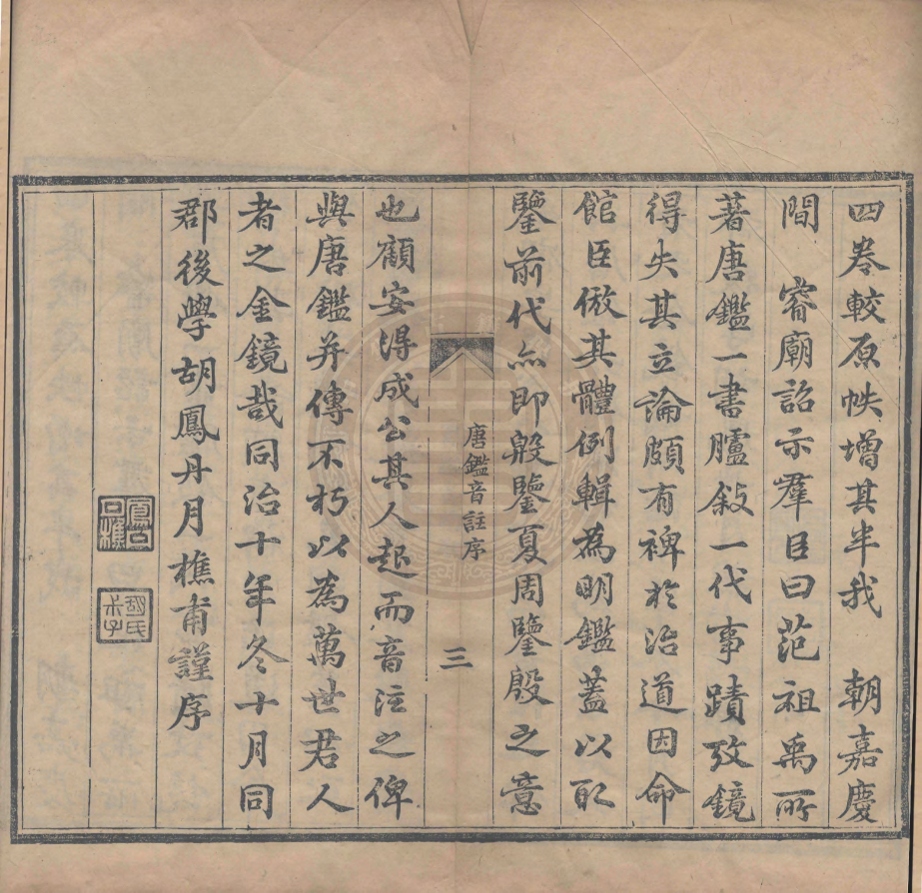 四卷較原帙增其半我　朝嘉慶
間　睿廟詔示羣臣曰范祖禹所
著唐鑑一書臚敍一代事蹟攷鏡
得失其立論頗有裨於治道因命
館臣倣其體例輯為明鑑蓋以取
鑒前代亦即殷鑒夏周鑒殷之意
唐鑑音註序
三
也顧安得成公其人起而音注之俾
與唐鑑并傳不朽以為萬世君人
者之金鏡哉同治十年冬十月同
郡後學胡鳳丹月樵甫謹序
胡氏